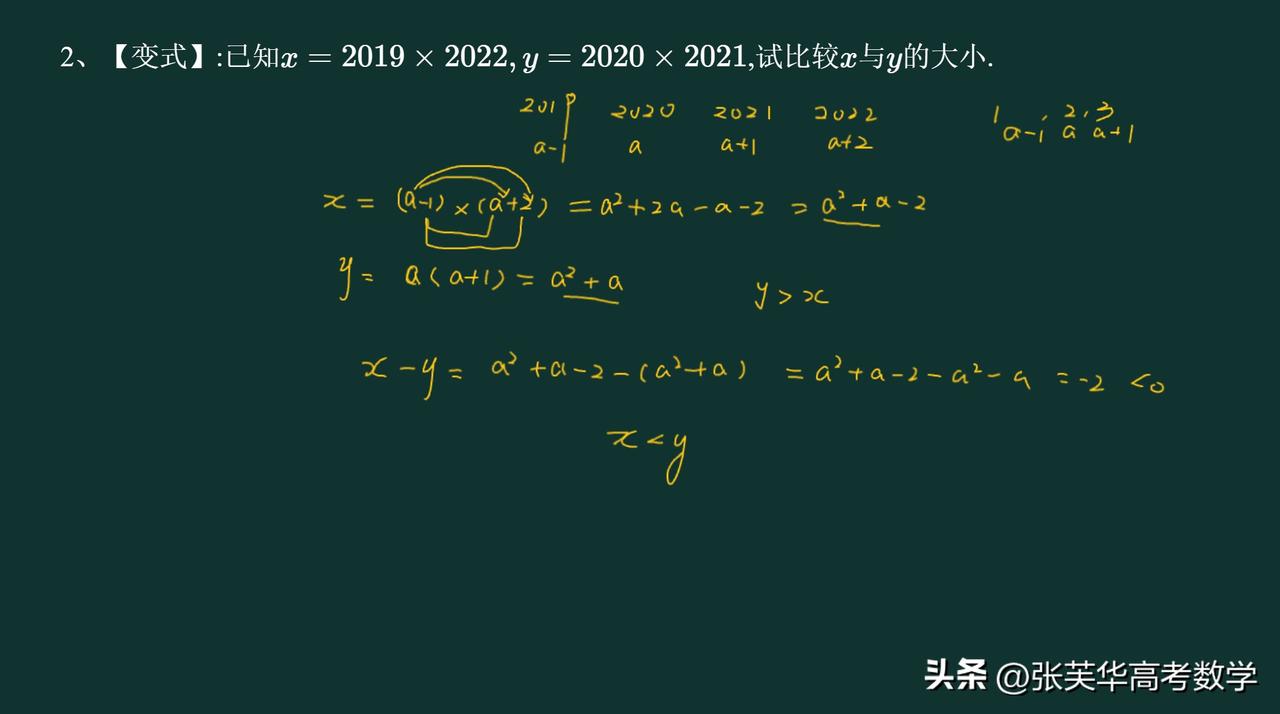 2、【变式】:已知x = 2019 × 2022, y = 2020 × 2021,试比较x与y的大小.
2019 2020 2021 2022 1, 2, 3
a-1 a a+1 a+2 a-1 a a+1
x = (a-1) × (a+2) = a²+2a-a-2 = a²+a-2
y = a(a+1) = a²+a y > x
x-y = a²+a-2-(a²+a) = a²+a-2-a²-a = -2 <0
x<y
头条 @张芙华高考数学